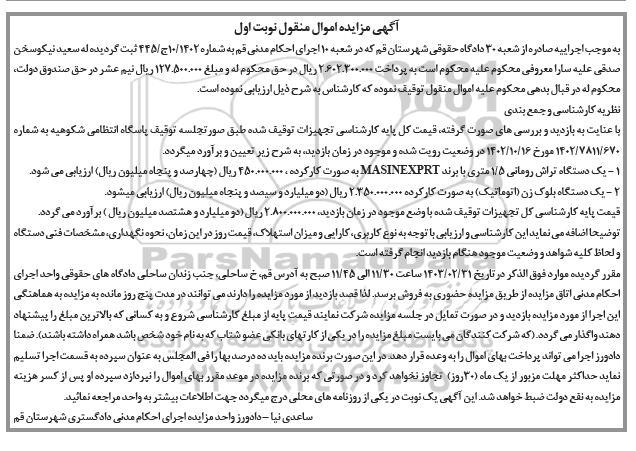 آگهی مزایده اموال منقول نوبت اول
به موجب اجراییه صادره از شعبه ۳۰ دادگاه حقوقی شهرستان قم که در شعبه ۱۰ اجرای احکام مدنی قم به شماره ۱۰/۱۴۰۲ج/۴۴۵ ثبت گردیده له سعید نیکوسخن
صدقی علیه سارا معروفی محکوم علیه محکوم است به پرداخت ۲.۶۰۲.۳۰۰.۰۰۰ ریال در حق محکوم له و مبلغ ۱۲۷.۵۰۰.۰۰۰ ریال نیم عشر در حق صندوق دولت،
محکوم له در قبال بدهی محکوم علیه اموال منقول توقیف نموده که کارشناس به شرح ذیل ارزیابی نموده است.
نظریه کارشناسی و جمع بندی
با عنایت به بازدید و بررسی های صورت گرفته، قیمت کل پایه کارشناسی تجهیزات توقیف شده طبق صورتجلسه توقیف پاسگاه انتظامی شکوهیه به شماره
۱۴۰۲/۷۸۱۱/۶۷۰ مورخ ۱۴۰۲/۱۰/۱۶ در وضعیت رویت شده و موجود در زمان بازدید، به شرح زیر تعیین و برآورد میگردد.
۱ - یک دستگاه تراش رومانی ۱/۵ متری با برند MASINEXPRT به صورت کارکرده ، ۴۵۰.۰۰۰.۰۰۰ ریال (چهارصد و پنجاه میلیون ریال) ارزیابی می شود.
۲ - یک دستگاه بلوک زن (اتوماتیک) به صورت کارکرده ۲.۳۵۰.۰۰۰.۰۰۰ ریال (دو میلیارد و سیصد و پنجاه میلیون ریال) ارزیابی میشود.
قیمت پایه کارشناسی کل تجهیزات توقیف شده با وضع موجود در زمان بازدید، ۲.۸۰۰.۰۰۰.۰۰۰ ریال (دو میلیارد و هشتصد میلیون ریال ) برآورد می گردد.
توضیحا اضافه می نماید این کارشناسی و ارزیابی با توجه به نوع کاربری، کارایی و میزان استهلاک، قیمت روز در این زمان، نحوه نگهداری، مشخصات فنی دستگاه
و لحاظ کلیه شواهد و وضعیت موجود هنگام بازدید انجام گرفته است.
مقرر گردیده موارد فوق الذکر در تاریخ ۱۴۰۳/۰۲/۳۱ ساعت ۱۱/۳۰ الی ۱۱/۴۵ صبح به آدرس قم، خ ساحلی، جنب زندان ساحلی دادگاه های حقوقی واحد اجرای
احکام مدنی اتاق مزایده از طریق مزایده حضوری به فروش برسد. لذا قصد بازدید از مورد مزایده را دارند می توانند در مدت پنج روز مانده به مزایده به هماهنگی
این اجرا از مورد مزایده بازدید و در صورت تمایل در جلسه مزایده شرکت نمایند قیمت پایه از مبلغ کارشناسی شروع و به کسانی که بالاترین مبلغ را پیشنهاد
دهند واگذار می گردد. (که شرکت کنندگان می بایست مبلغ مزایده را در یکی از کارتهای بانکی عضو شتاب که به نام خود شخص باشد همراه داشته باشند). ضمنا
دادورز اجرا می تواند پرداخت بهای اموال را به وعده قرار دهد. در این صورت برنده مزایده باید ده درصد بها را فی المجلس به عنوان سپرده به قسمت اجرا تسلیم
نماید حداکثر مهلت مزبور از یک ماه (۳۰ روز) تجاوز نخواهد کرد و در صورتی که برنده مزایده در موعد مقرر بهای اموال را نپردازد سپرده او پس از کسر هزینه
مزایده به نفع دولت ضبط خواهد شد. این آگهی یک نوبت در یکی از روزنامه های محلی درج میگردد جهت اطلاعات بیشتر به واحد مراجعه نمائید.
ساعدی نیا – دادورز واحد مزایده اجرای احکام مدنی دادگستری شهرستان قم